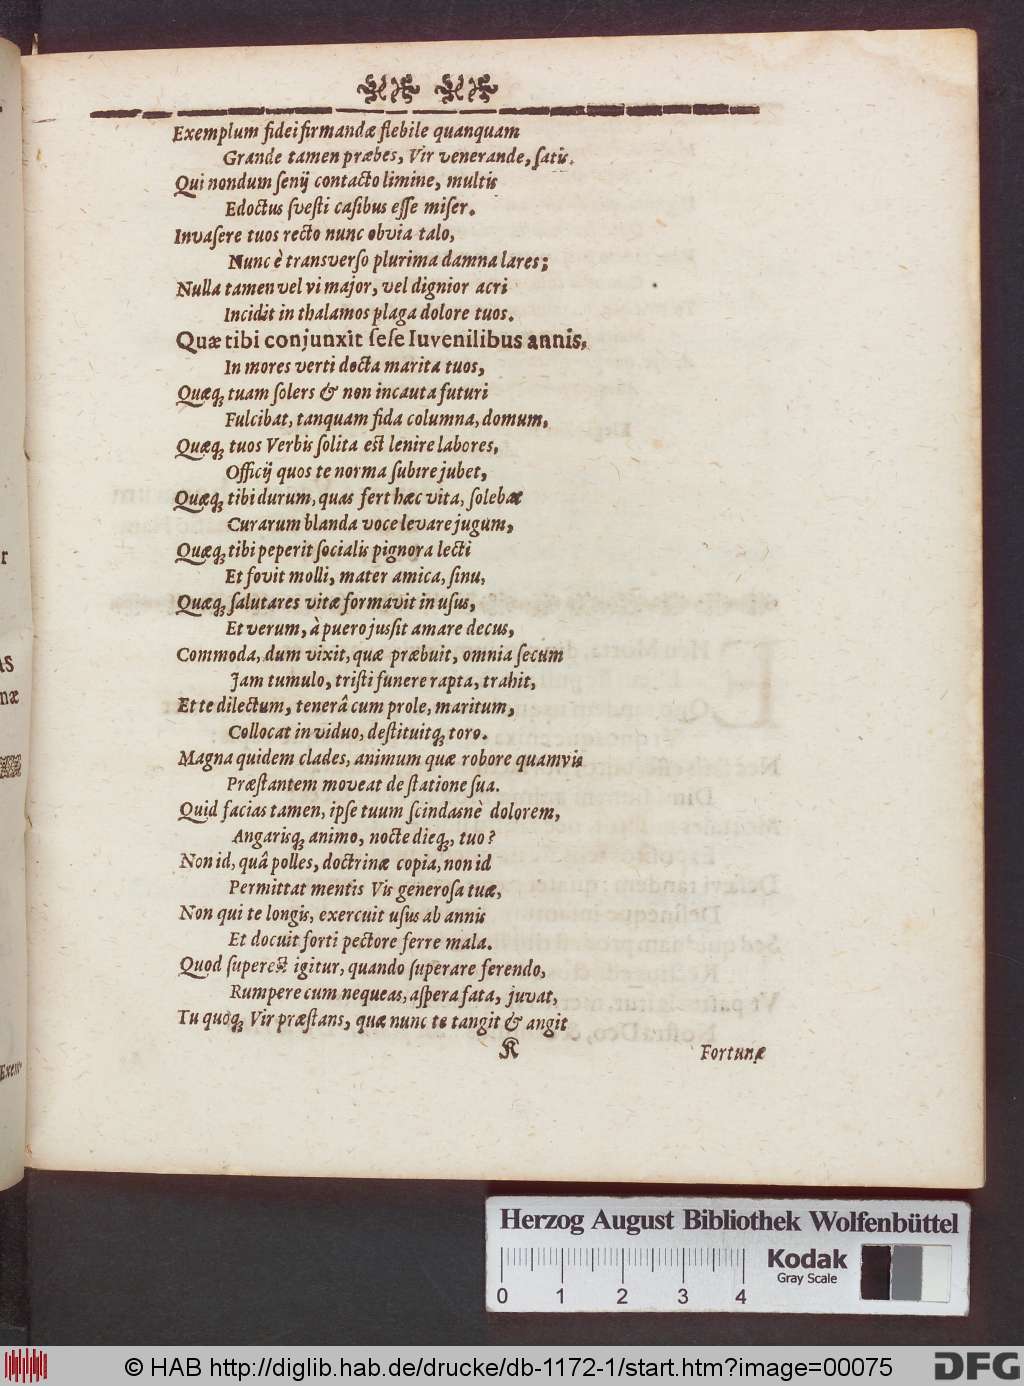 Exemplum fidei firmandæ flebile quanquam
Grande tamen præbes, Vir venerande, satis.
Qui nondum senij contacto limine, multis
Edoctus svesti casibus esse miser.
Invasere tuos recto nunc obvia talo,
Nunc è transverso plurima damna lares;
Nulla tamen vel vi major, vel dignior acri
Incidit in thalamos plaga dolore tuos.
Quæ tibi conjunxit sese Iuvenilibus annis,
In mores verti docta marita tuos,
Quæq; tuam solers & non incauta futuri
Fulcibat, tanquam fida columna, domum,
Quæq; tuos Verbis solita est lenire labores,
Officij quos te norma subire jubet,
Quæq; tibi durum, quas fert hæc vita, solebat
Curarum blanda voce levare jugum,
Quæq; tibi peperit socialis pignora lecti
Et fovit molli, mater amica, sinu,
Quæq; salutares vitæ formavit in usus,
Et verum, à puero jussit amare decus,
Commoda, dum vixit, quæ præbuit, omnia secum
Jam tumulo, tristi funere rapta, trahit,
Et te dilectum, tenerâ cum prole, maritum,
Collocat in viduo, destituitq; toro.
Magna quidem clades, animum quæ robore quamvis
Præstantem moveat de statione sua.
Quid facias tamen, ipse tuum scindasnè dolorem,
Angarisq; animo, nocte dieq;, tuo?
Non id, quâ polles, doctrinæ copia, non id
Permittat mentis Vis generosa tuæ,
Non qui te longis, exercuit usus ab annis
Et docuit forti pectore ferre mala.
Quod superest igitur, quando superare ferendo,
Rumpere cum nequeas, aspera fata, juvat,
Tu quoq; Vir præstans, quæ nunc te tangit & angit
K
Fortunæ
r
as
næ
Exem-
Herzog August Bibliothek Wolfenbüttel
Kodak
Gray Scale
0 1 2 3 4
© HAB http://diglib.hab.de/drucke/db-1172-1/start.htm?image=00075
DFG